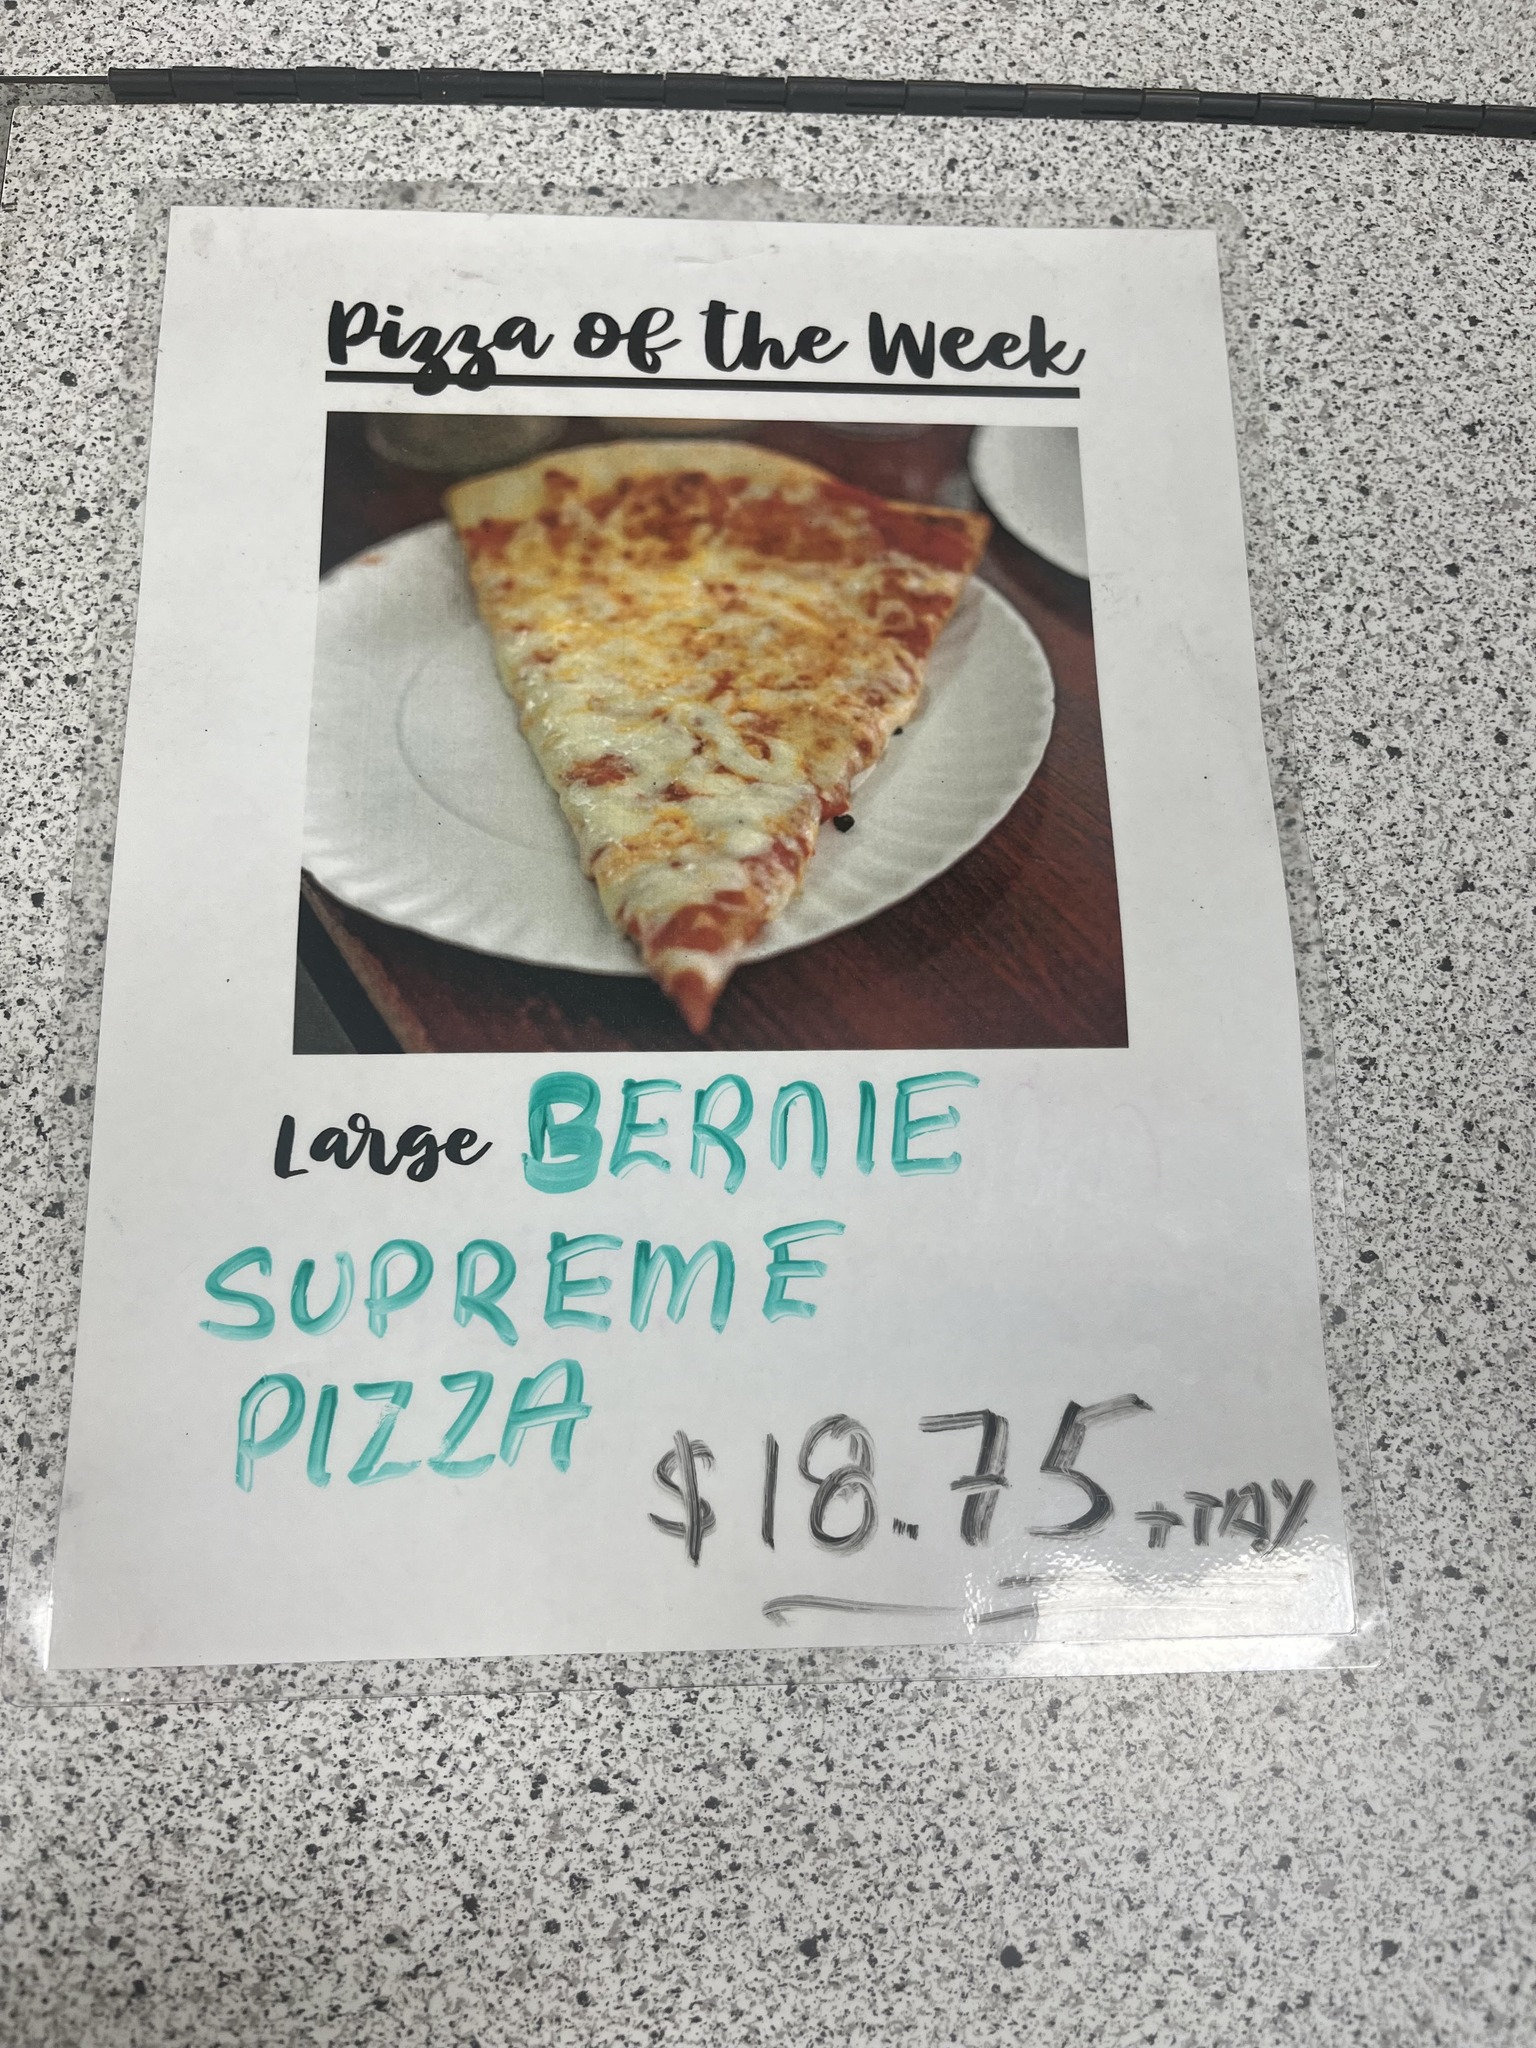 Pizza of the Week
Large BERNIE
SUPREME
PIZZA
$18.75 +TAX